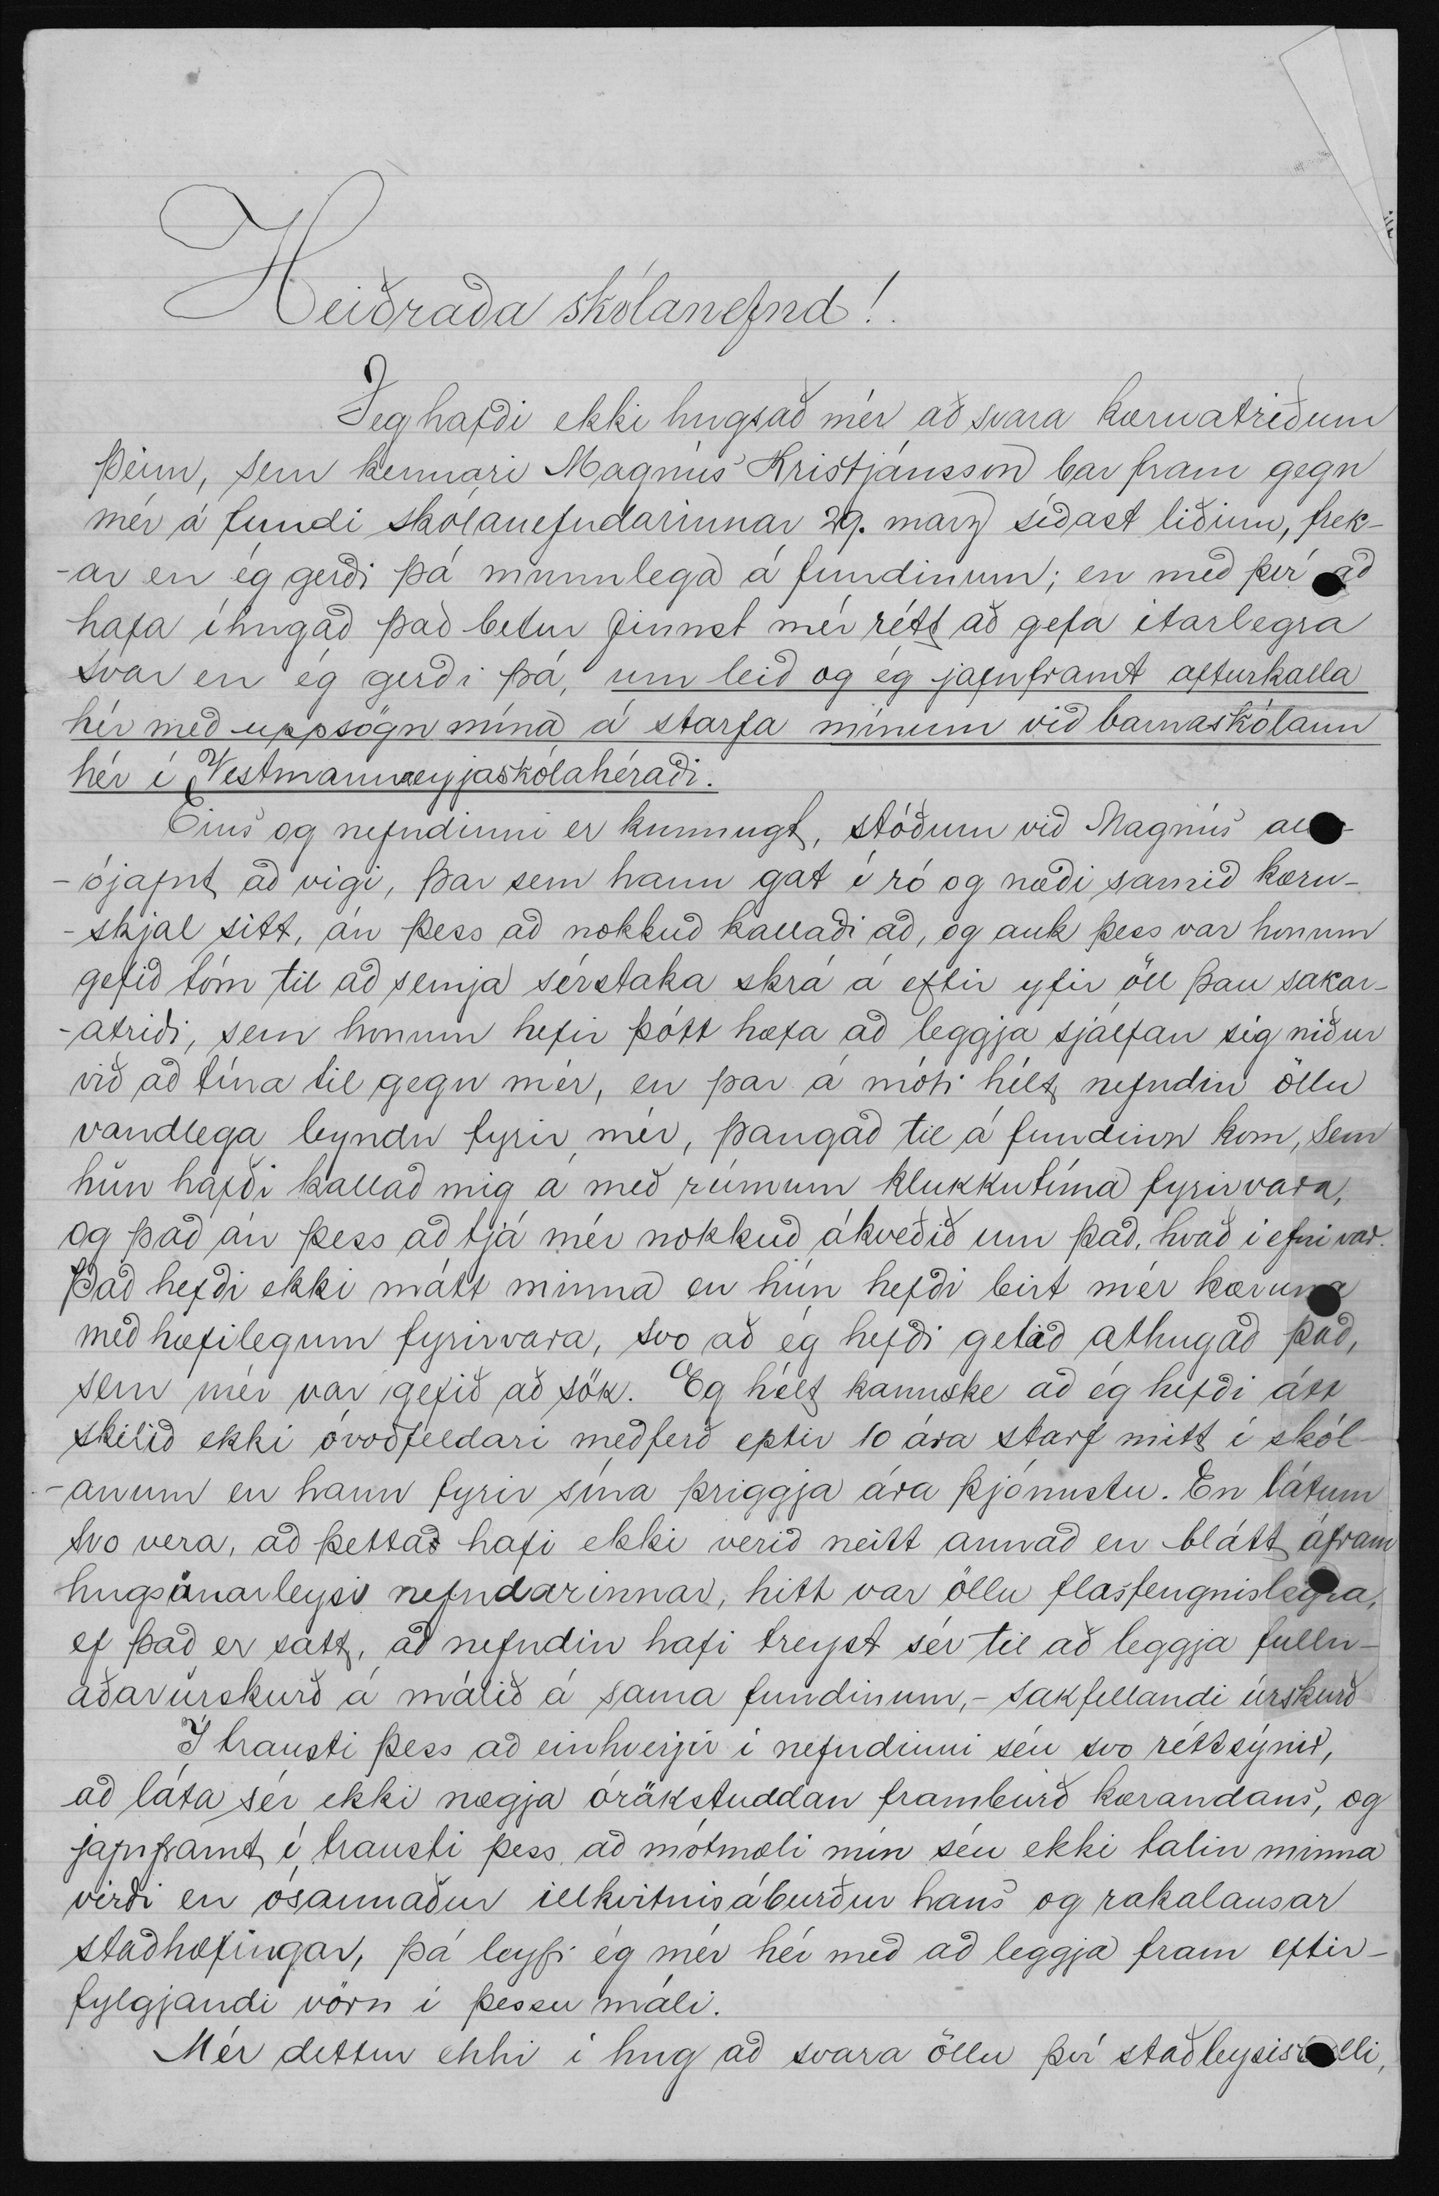 Heiðraða skólanefnd!
Jeg hafði ekki hugsað mér að svara kæruatriðum
þeim, sem kennari Magnús Kristjánsson bar fram gegn
mér á fundi skólanefndarinnar 29. marz síðast liðinn, frek-
-ar en ég gerði þá munnlega á fundinum; en með því að
hafa íhugað það betur finnst mér rétt að gefa ítarlegra
svar en ég gerði þá, um leið og ég jafnframt afturkalla
hér með uppsögn mína á starfa mínum við barnaskólann
hér í Vestmannaeyjaskólahéraði.
Eins og nefndinni er kunnugt, stóðum við Magnús
-ójafnt að vigi, þar sem hann gat í ró og næði samið kæru-
-skjal sitt, án þess að nokkuð kallaði að, og auk þess var honum
gefið tóm til að semja sérstaka skrá á eftir yfir öll þau sakar-
-atriði, sem honum hefir þótt hæfa að leggja sjálfan sig niður
við að tína til gegn mér, en þar á móti hélt nefndin öllu
vandlega leyndu fyrir mér, þangað til á fundinn kom, sem
hún hafði kallað mig á með rúmum klukkutíma fyrirvara,
og það án þess að tjá mér nokkuð ákveðið um það, hvað í efni var.
Það hefði ekki mátt minna en hún hefði birt mér kæruna
með hæfilegum fyrirvara, svo að ég hefði getað athugað það,
sem mér var gefið að sök. Eg hélt kannske að ég hefði átt
skilið ekki óvoðfeldari meðferð eptir 10 ára starf mitt í skól-
-anum en hann fyrir sína þriggja ára þjónustu. En látum
svo vera, að þetta hafi ekki verið neitt annað en blátt áfram
hugsunarleysi nefndarinnar, hitt var öllu flasfengnislegra,
ef það er satt, að nefndin hafi treyst sér til að leggja fulln-
aðarúrskurð á málið á sama fundinum,- sakfellandi úrskurð
Í trausti þess að einhverjir í nefndinni séu svo réttsýnir,
að láta sér ekki nægja órökstuddan framburð kærandans, og
jafnframt í trausti þess að mótmæli mín séu ekki talin minna
virði en ósannaður illkvitnisáburður hans og rakalausar
staðhæfingar, þá leyfi ég mér hér með að leggja fram eftir-
fylgjandi vörn í þessu máli.
Mér dettur ekki í hug að svara öllu því